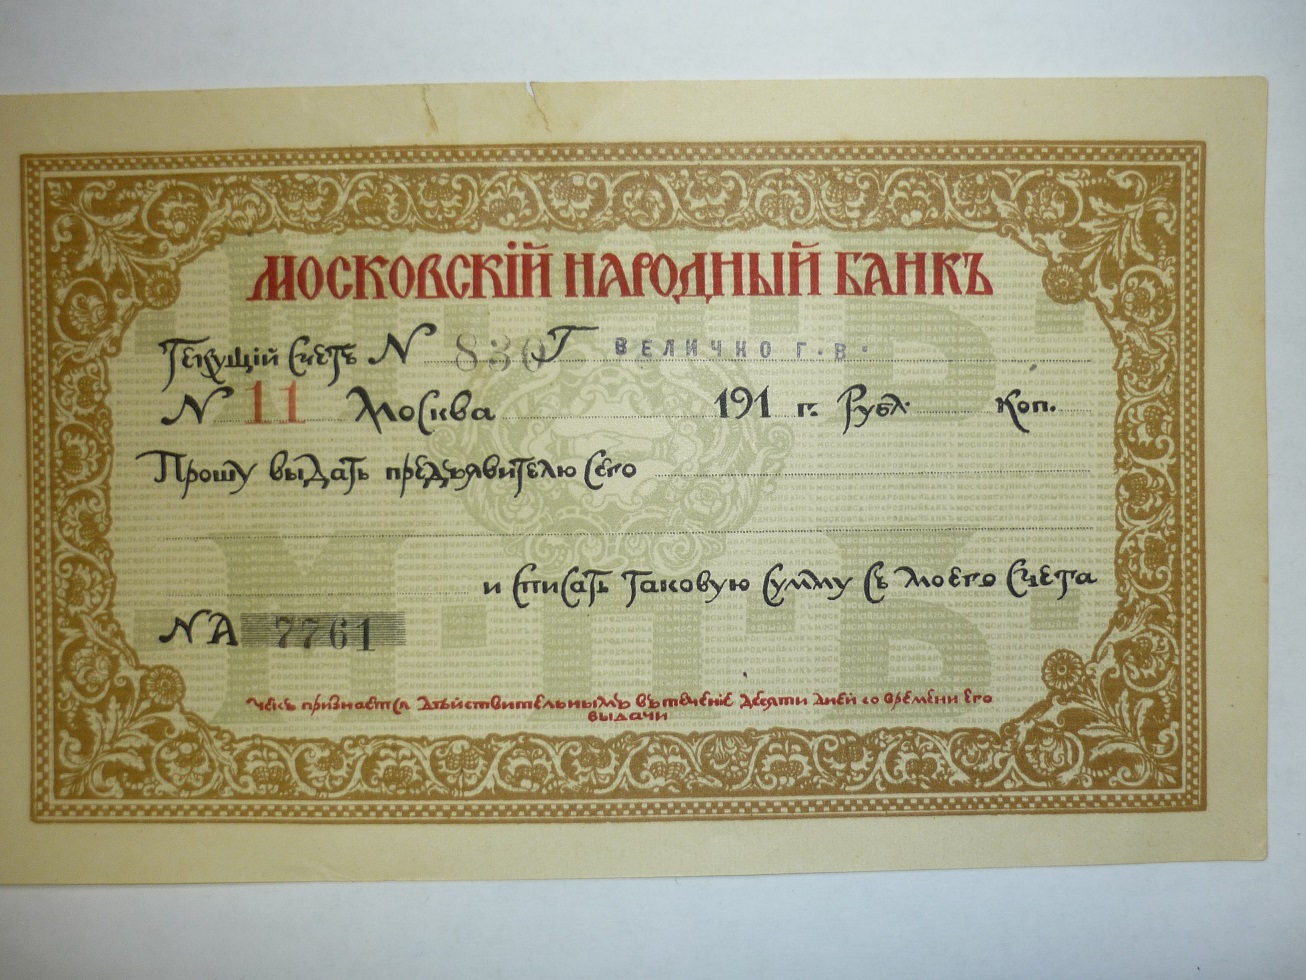 МОСКОВСКІЙ НАРОДНЫЙ БАНКЪ
Текущій Счетъ N 830 Г ВЕЛИЧКО Г. В.
N 11 Москва 191 г. Рубл. Коп.
Прошу выдать предъявителю сего
и списать таковую сумму съ моего счета
NА 7761
Чекъ признается дѣйствительнымъ въ теченіе десяти дней со времени его
выдачи